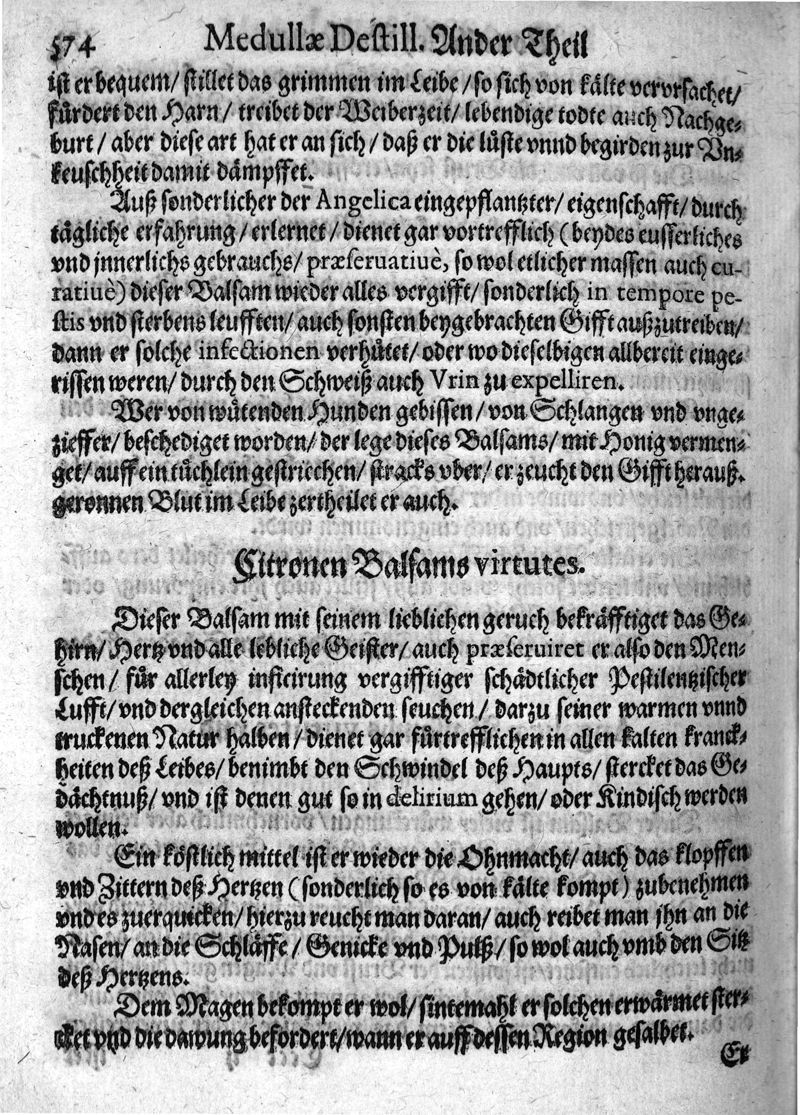 574 Medullæ Destill. Ander Theil
ist er bequem/ stillet das grimmen im Leibe/ so sich von kälte verursachet/
fürdert den Harn/ treibet der Weiberzeit/ lebendige todte auch Nachge-
burt/ aber diese art hat er an sich/ daß er die lüste vnnd begirden zur Vn-
keuschheit damit dämpffet.
Auß sonderlicher der Angelica eingepflantzter/ eigenschafft/ durch
tägliche erfahrung/ erlernet/ dienet gar vortrefflich (beydes eusserliches
vnd jnnerlichs gebrauchs/ præseruatiuè, so wol etlicher massen auch cu-
ratiuè) dieser Balsam wieder alles vergifft/ sonderlich in tempore pe-
stis vnd sterbens leufften/ auch sonsten beygebrachten Gifft außzutreiben/
dann er solche infectionen verhütet/ oder wo dieselbigen allbereit einge-
rissen weren/ durch den Schweiß auch Vrin zu expelliren.
Wer von wütenden Hunden gebissen/ von Schlangen vnd vnge-
zieffer/ beschediget worden/ der lege dieses Balsams/ mit Honig vermen-
get/ auff ein tüchlein gestriechen/ stracks vber/ er zeucht den Gifft herauß.
geronnen Blut im Leibe zertheilet er auch.
Citronen Balsams virtutes.
Dieser Balsam mit seinem lieblichen geruch bekräfftiget das Ge-
hirn/ Hertz vnd alle lebliche Geister/ auch præseruiret er also den Men-
schen/ für allerley inficirung vergifftiger schädtlicher Pestilentzischer
Lufft/ vnd dergleichen ansteckenden seuchen/ darzu seiner warmen vnnd
truckenen Natur halben/ dienet gar fürtrefflichen in allen kalten kranck-
heiten deß Leibes/ benimbt den Schwindel deß Haupts/ stercket das Ge-
dächtnuß/ vnd ist denen gut so in delirium gehen/ oder Kindisch werden
wollen.
Ein köstlich mittel ist er wieder die Ohnmacht/ auch das klopffen
vnd Zittern deß Hertzen (sonderlich so es von kälte kompt) zubenehmen
vnd es zuerquicken/ hierzu reucht man daran/ auch reibet man jhn an die
Nasen/ an die Schläffe/ Genicke vnd Pulß/ so wol auch vmb den Sitz
deß Hertzens.
Dem Magen bekompt er wol/ sintemahl er solchen erwärmet ster-
cket vnd die dawung befordert/ wann er auff dessen Region gesalbet.
Er